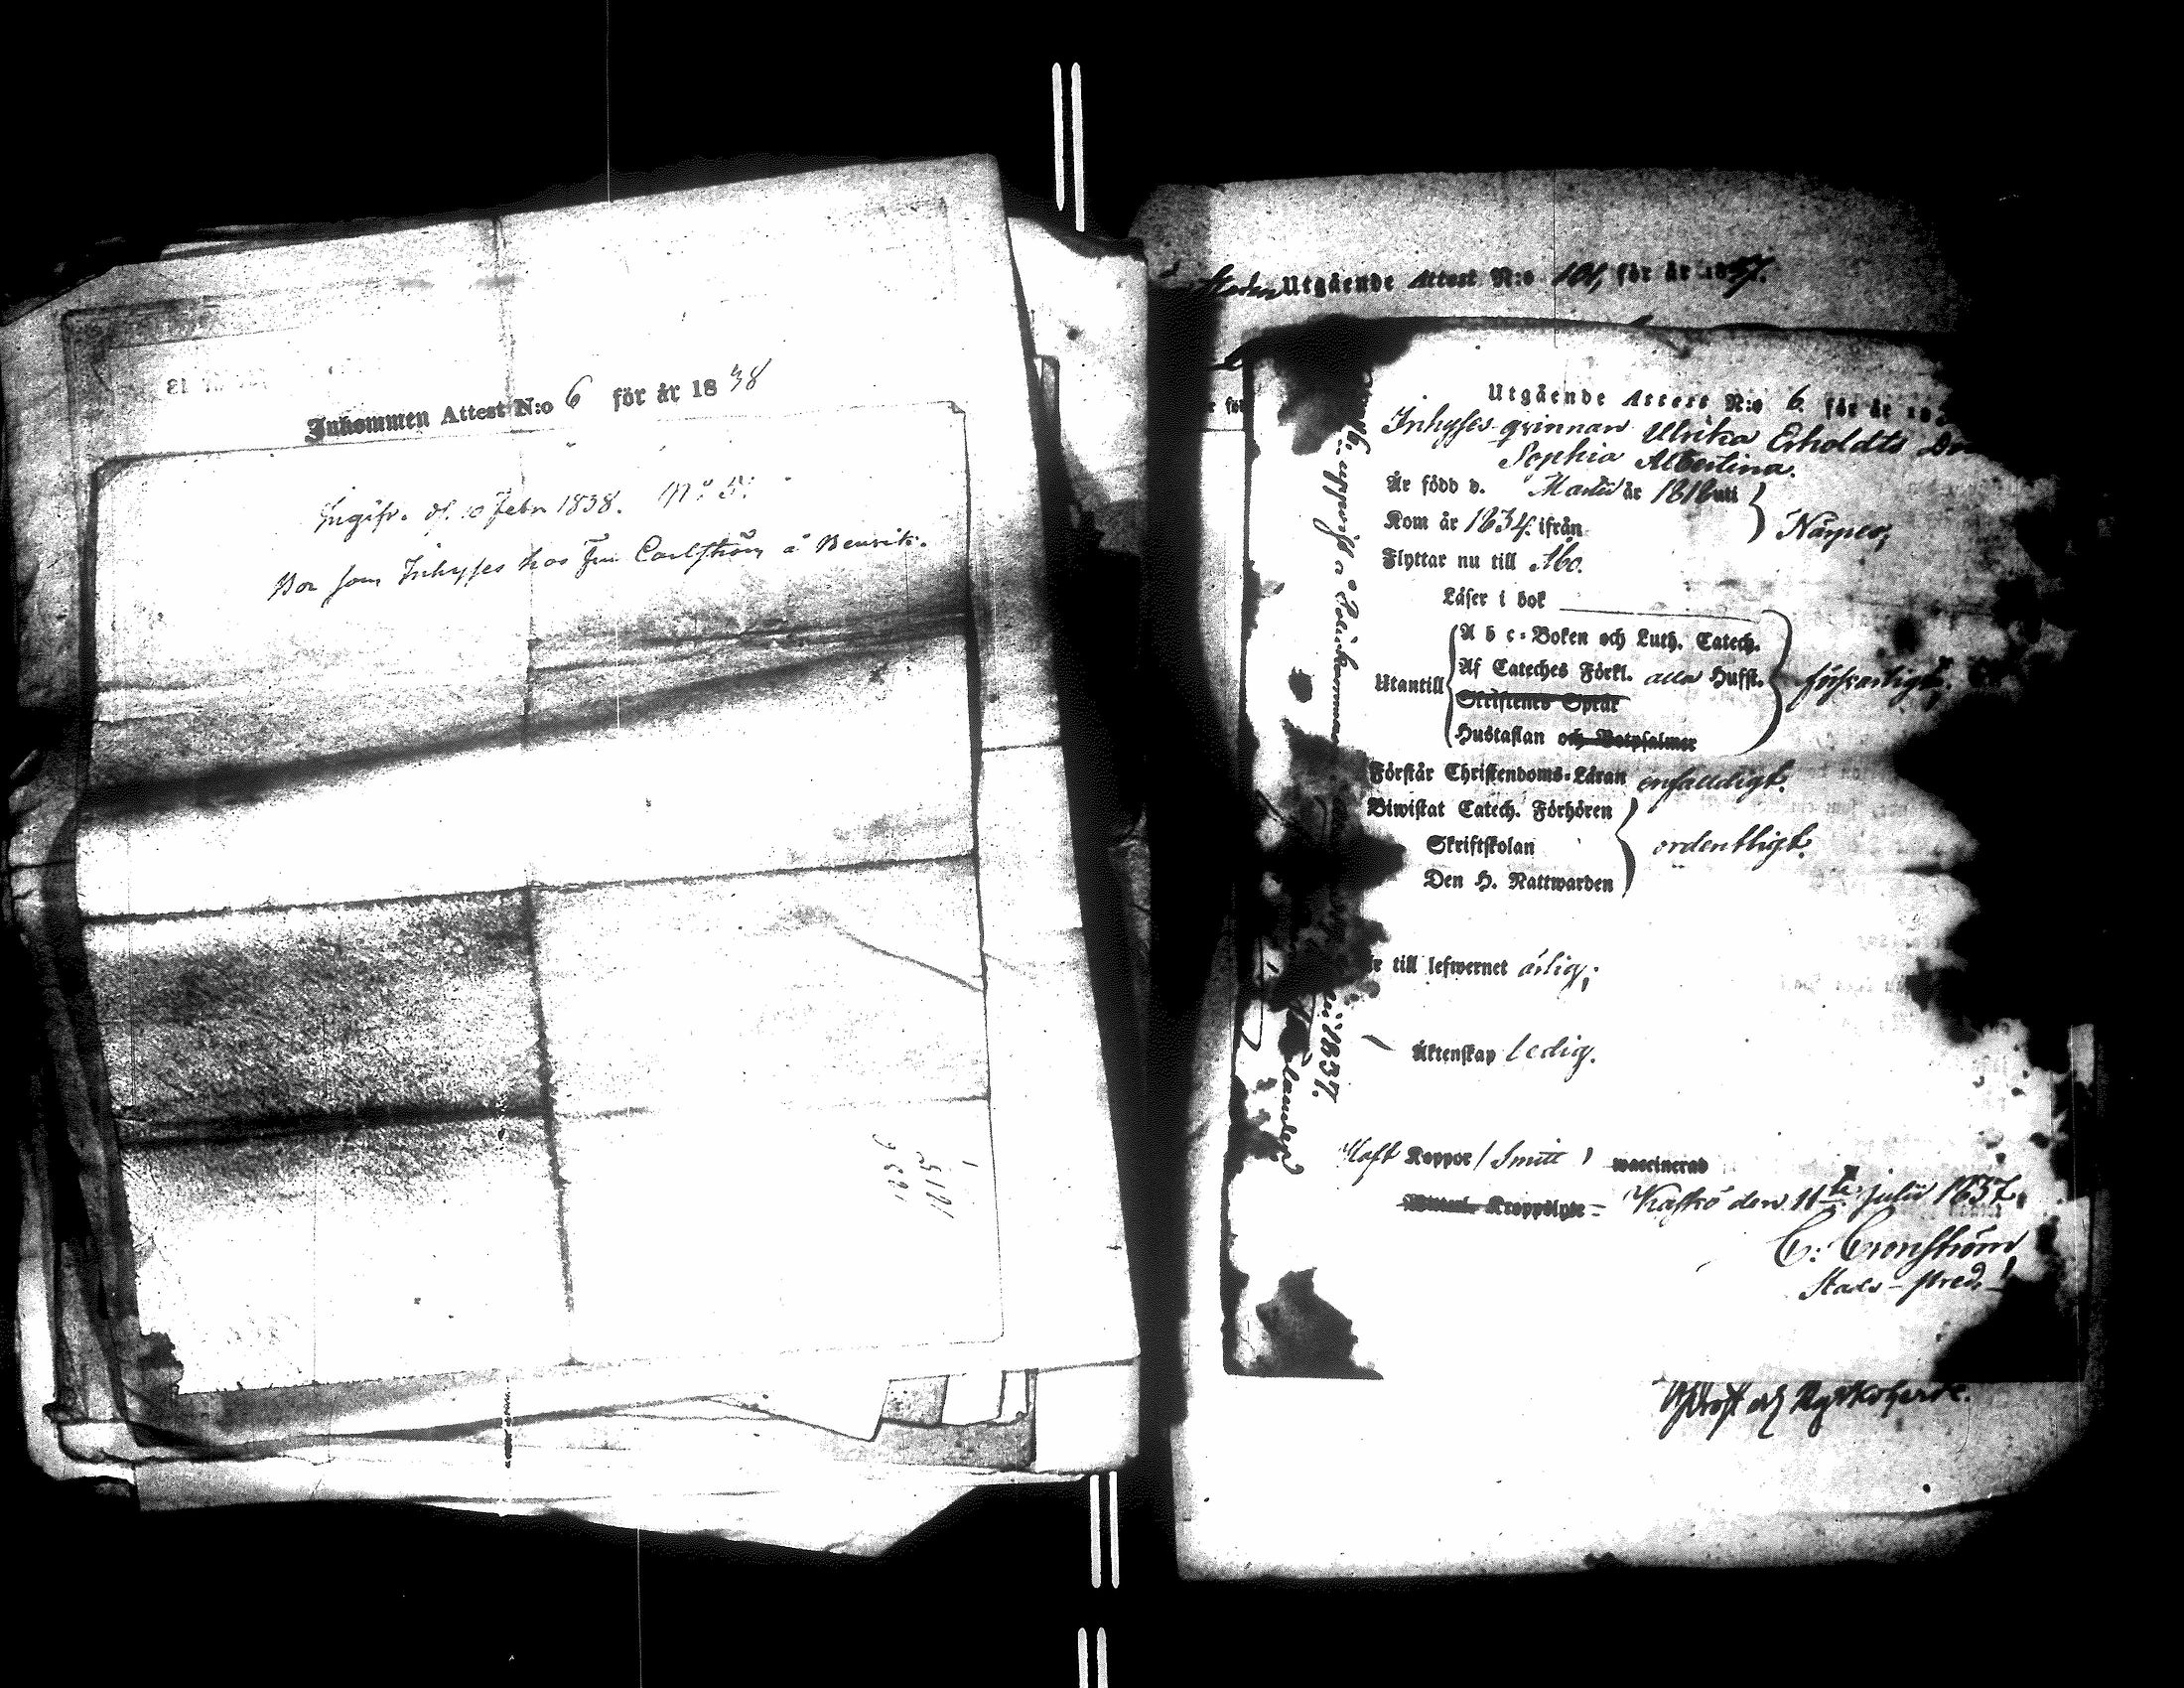 Inkommen Attest N:o 6 för år 1838
Ingifv. d. 10 Febr 1838. N:o 5:
Bor som Inhyses hos Carlström å
Utgående Attest N:o 101, för år 1837.
Utgående Attest N:o 6. för år
Inhyses qvinnan Ulrika Erholdts
Sophia Albertina.
Är född d. Martii år 1818 uti
Kom år 1834. ifrån
Närpes,
Flyttar nu till Åbo.
Läser i bok
Utantill
A b c-Boken och Luth. Catech.
Af Cateches Förkl. alla Hufst.
Skriftenes Språk
Hustaflan och Botpsalmer
försvarligt.
Förstår Christendoms-Läran enfaldigt.
Biwistat Catech. Förhören
Skriftskolan
Den H. Nattwarden
ordentligt.
till lefwernet ärlig;
Äktenskap ledig.
Haft Koppor / Smitt waccinerad
Kroppslyte – Kaskö den 11te Julii 1837.
C: Cronström
Stads-pred.
uppvist å
1837.